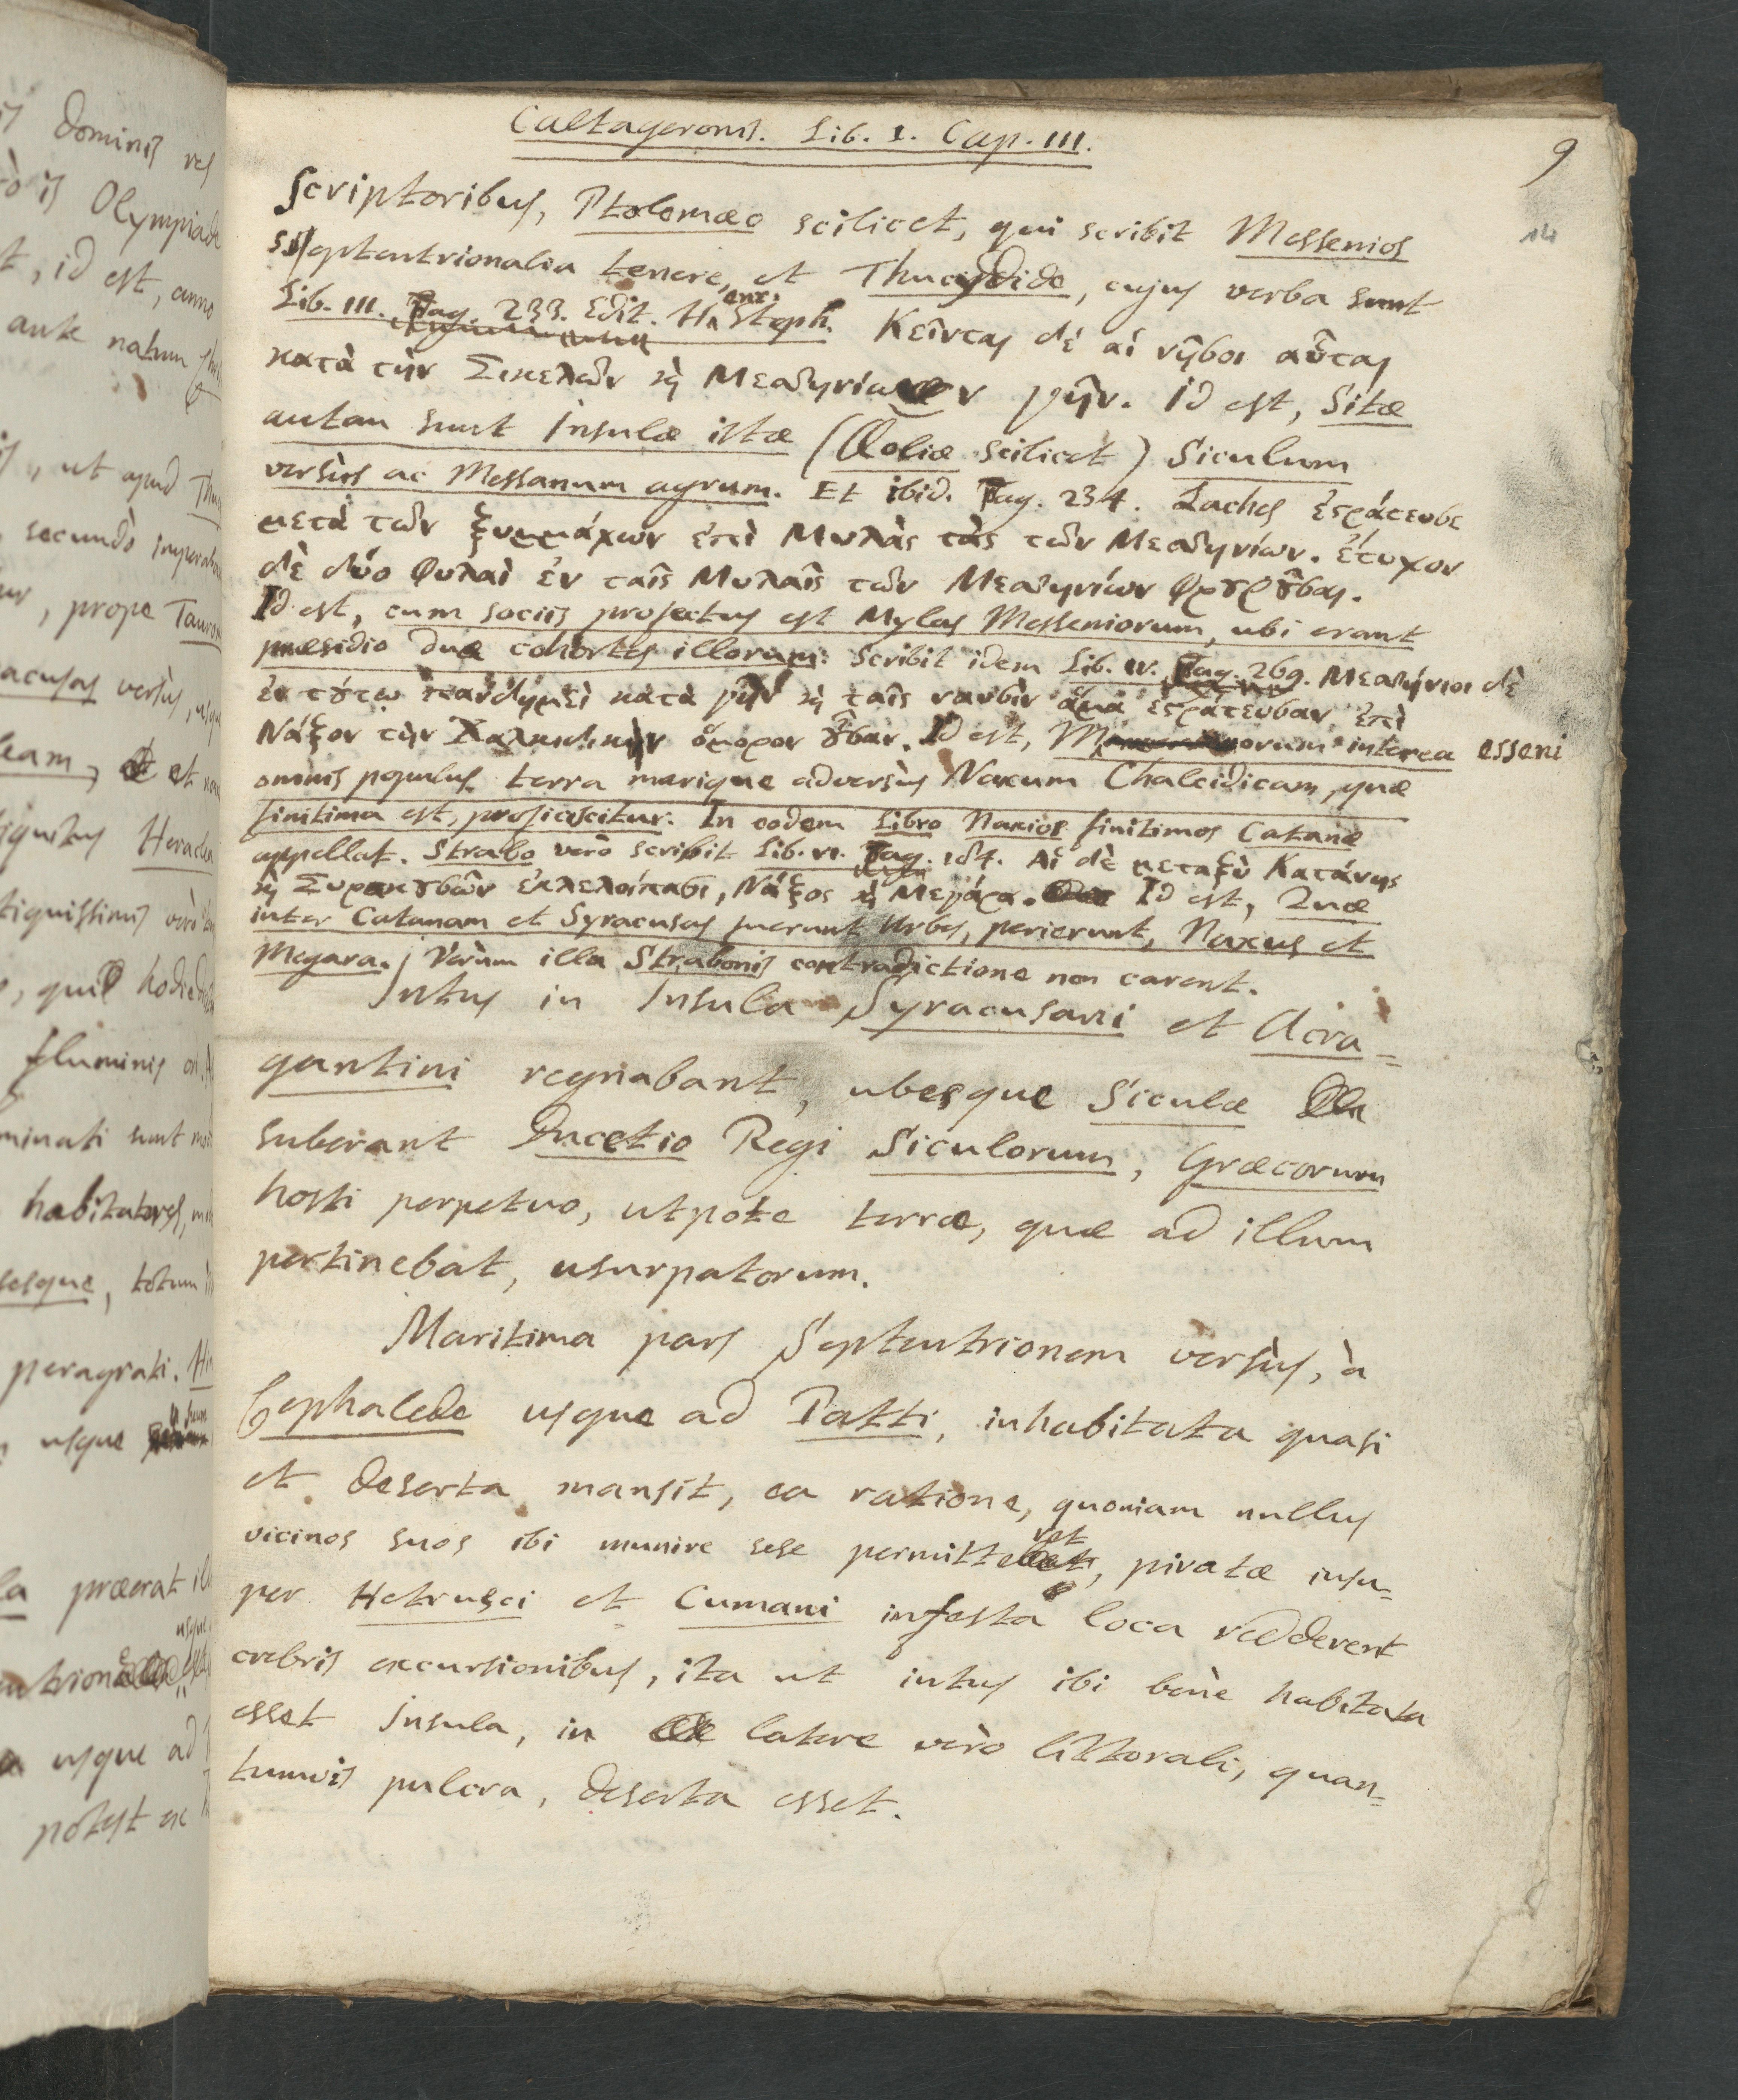 Caltageronis. Lib. I. Cap. III.
9
14
scriptoribus, Ptolomæo scilicet, qui scribit Messenios
septentrionalia tenere, et Thucydide, cujus verba sunt
Lib. III. Pag. 233. Edit. Henr. Steph. Κεῖνται δέ αἱ νῆσοι αὗται
κατὰ τὴν Σικελῶν ϗ Μεσσηνίων γῆν. Id est, Sitæ
autem sunt Insulæ istæ (Æoliæ scilicet) Siculum
versùs ac Messanum agrum. Et ibid. Pag. 234. Laches ἐϛράτευσε
μετὰ τῶν ξυμμάχων ἐπὶ Μυλὰς τὰς τῶν Μεσσηνίων. ἔτυχον
δὲ δύο φυλαὶ ἐν ταῖς Μυλαῖς τῶν Μεσσηνίων φρȣρȣ͂σαι.
Id est, cum sociis profectus est Mylas Messeniorum, ubi erant
præsidio duæ cohortes illorum. Scribit idem Lib. IV. Pag. 269. Μεσσήνιοι δὲ
ἐν τȣ́τῳ πανδημεὶ κατὰ γῆν ϗ ταῖς ναυσὶν ἅμα ἐϛράτευσαν ἐπὶ
Νάξον τὴν Χαλκιδικὴν ὅμορον ȣ͂σαν. Id est, Messeniorum interea
omnis populus terra marique adversùs Naxum Chalcidicam, quæ
finitima est, proficiscitur. In eodem Libro Naxios finitimos Catanæ
appellat. Strabo verò scribit Lib. VI. Pag. 184. Αἱ δὲ μεταξὺ Κατάνης
ϗ Συρακȣσῶν ἐκλελοίπασι, Νάξος ϗ Μεγάρα. Id est, Quæ
inter Catanam et Syracusas fuerunt Urbes, perierunt, Naxus et
Megara. Verùm illa Strabonis contradictione non carent.
Intus in Insula Syracusani et Acra-
gantini regnabant, ubesque Siculæ
suberant Ducetio Regi Siculorum, Græcorum
hosti perpetuo, utpote terræ, quæ ad illum
pertinebat, usurpatorum.
Maritima pars Septentrionem versùs, à
Cephalede usque ad Patti, inhabitata quasi
et deserta mansit, ea ratione, quoniam nullus
vicinos suos ibi munire sese permitteret, piratæ insu-
per Hetrusci et Cumani infesta loca redderent
crebris excursionibus, ita ut intus ibi benè habitata
esset Insula, in latere verò littorali, quan-
tumvis pulcra, deserta esset.